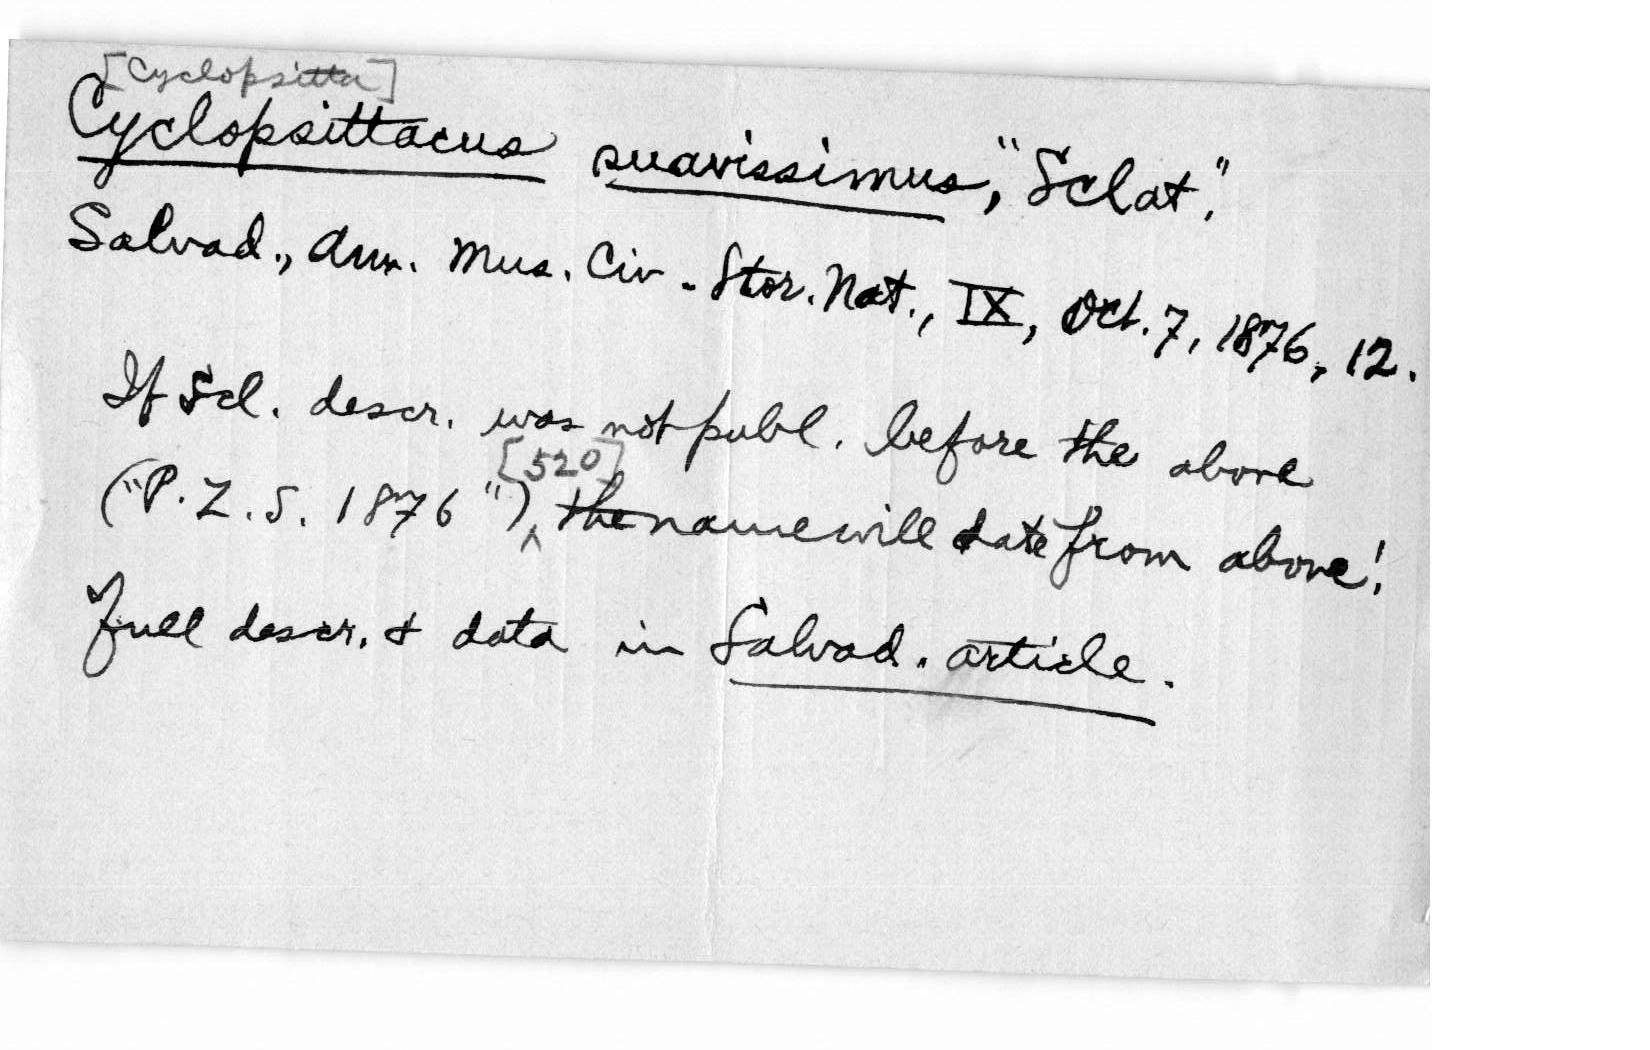 [Cyclopsitta]
Cyclopsittacus suavissimus, "Sclat."
Salvad., Ann. Mus. Civ. Stor. Nat., IX, Oct. 7, 1876, 12.
If Scl. descr. was not publ. before the above
[520]
("P.Z.S. 1876")‸ the name will date from above!
Full descr. & data in Salvad. article.